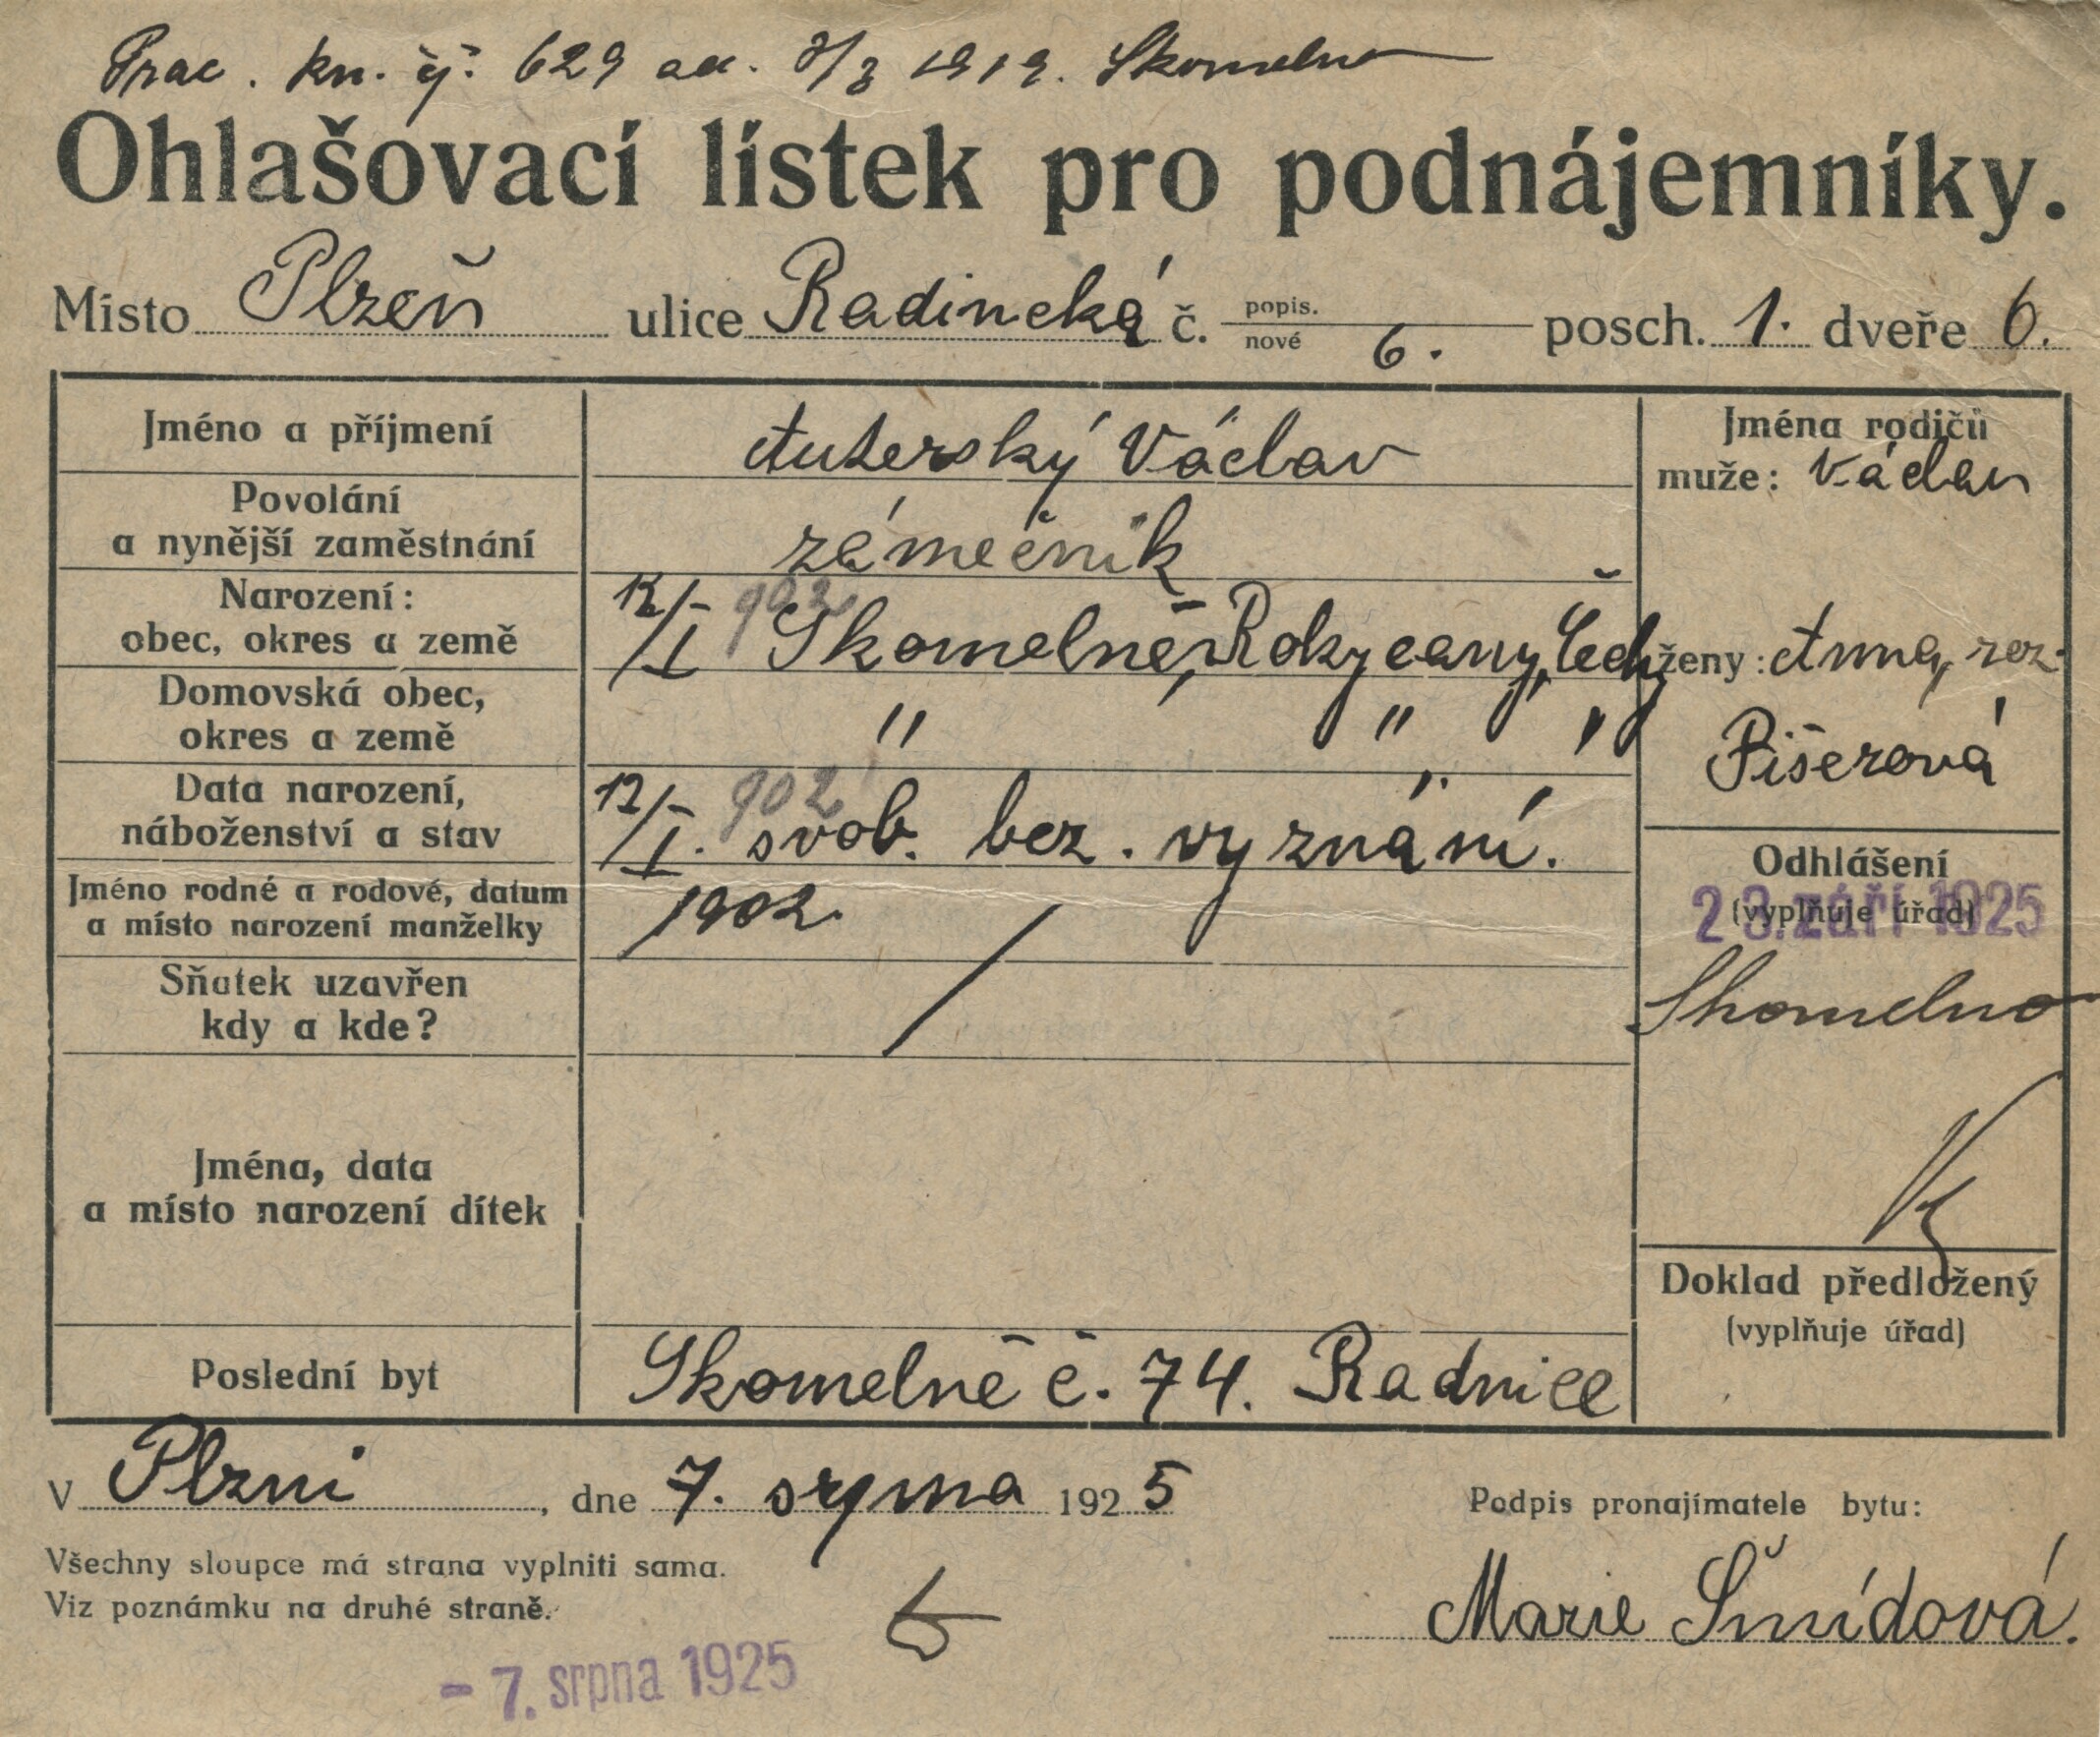 Prac. kn. čj: 629 ad. 7/3 1919. Skomelno
Ohlašovací lístek pro podnájemníky.
Místo Plzeň ulice Radinická č. popis. nové 6. posch. 1. dveře 6.
Jméno a příjmení Auterský Václav
Jména rodičů
muže: Václav
Povolání
a nynější zaměstnání zámečník
Narození:
obec, okres a země 12/I 902 Skomelně, Rokycany, Čechy
ženy: Anna, roz.
Pišerová
Domovská obec,
okres a země " " "
Data narození,
náboženství a stav 12/I. 902 svob. bez. vyznání.
1902.
Jméno rodné a rodové, datum
a místo narození manželky
Sňatek uzavřen
kdy a kde?
Odhlášení
(vyplňuje úřad)
23. září 1925
Skomelno
Jména, data
a místo narození dítek
Doklad předložený
(vyplňuje úřad)
Poslední byt Skomelně č. 74. Radnice
V Plzni, dne 7. srpna 1925
Podpis pronajímatele bytu:
Všechny sloupce má strana vyplniti sama.
Viz poznámku na druhé straně.
Marie Šmídová.
- 7. srpna 1925